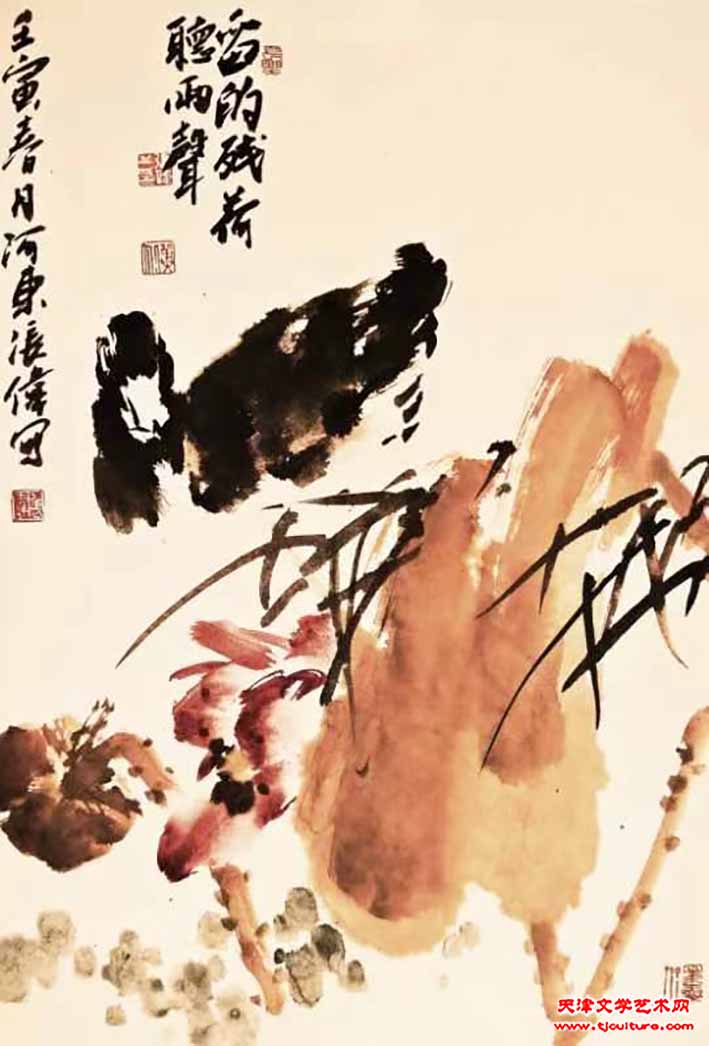 留的残荷
聽雨聲
壬寅春月河東張偉写
天津文学艺术网
www.tjculture.com